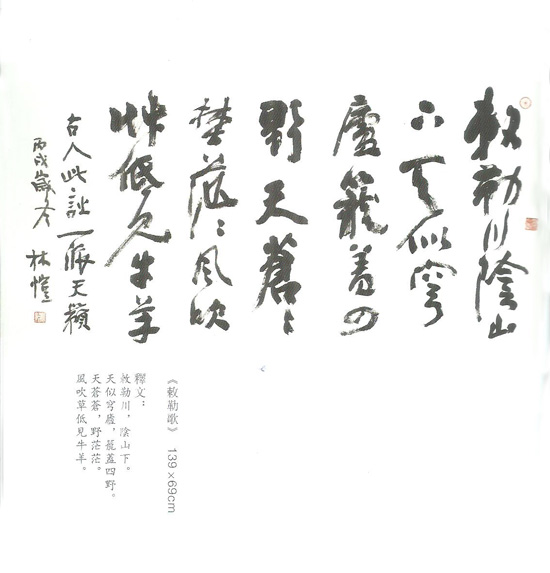 敕勒川陰山
下天似穹
廬籠蓋四
野天蒼〻
埜茫〻風吹
艸低見牛羊
古人此詠一派天籟
丙戌歲冬 林愷
《敕勒歌》 139×69cm
釋文：
敕勒川，陰山下。
天似穹廬，籠蓋四野。
天蒼蒼，野茫茫。
風吹草低見牛羊。